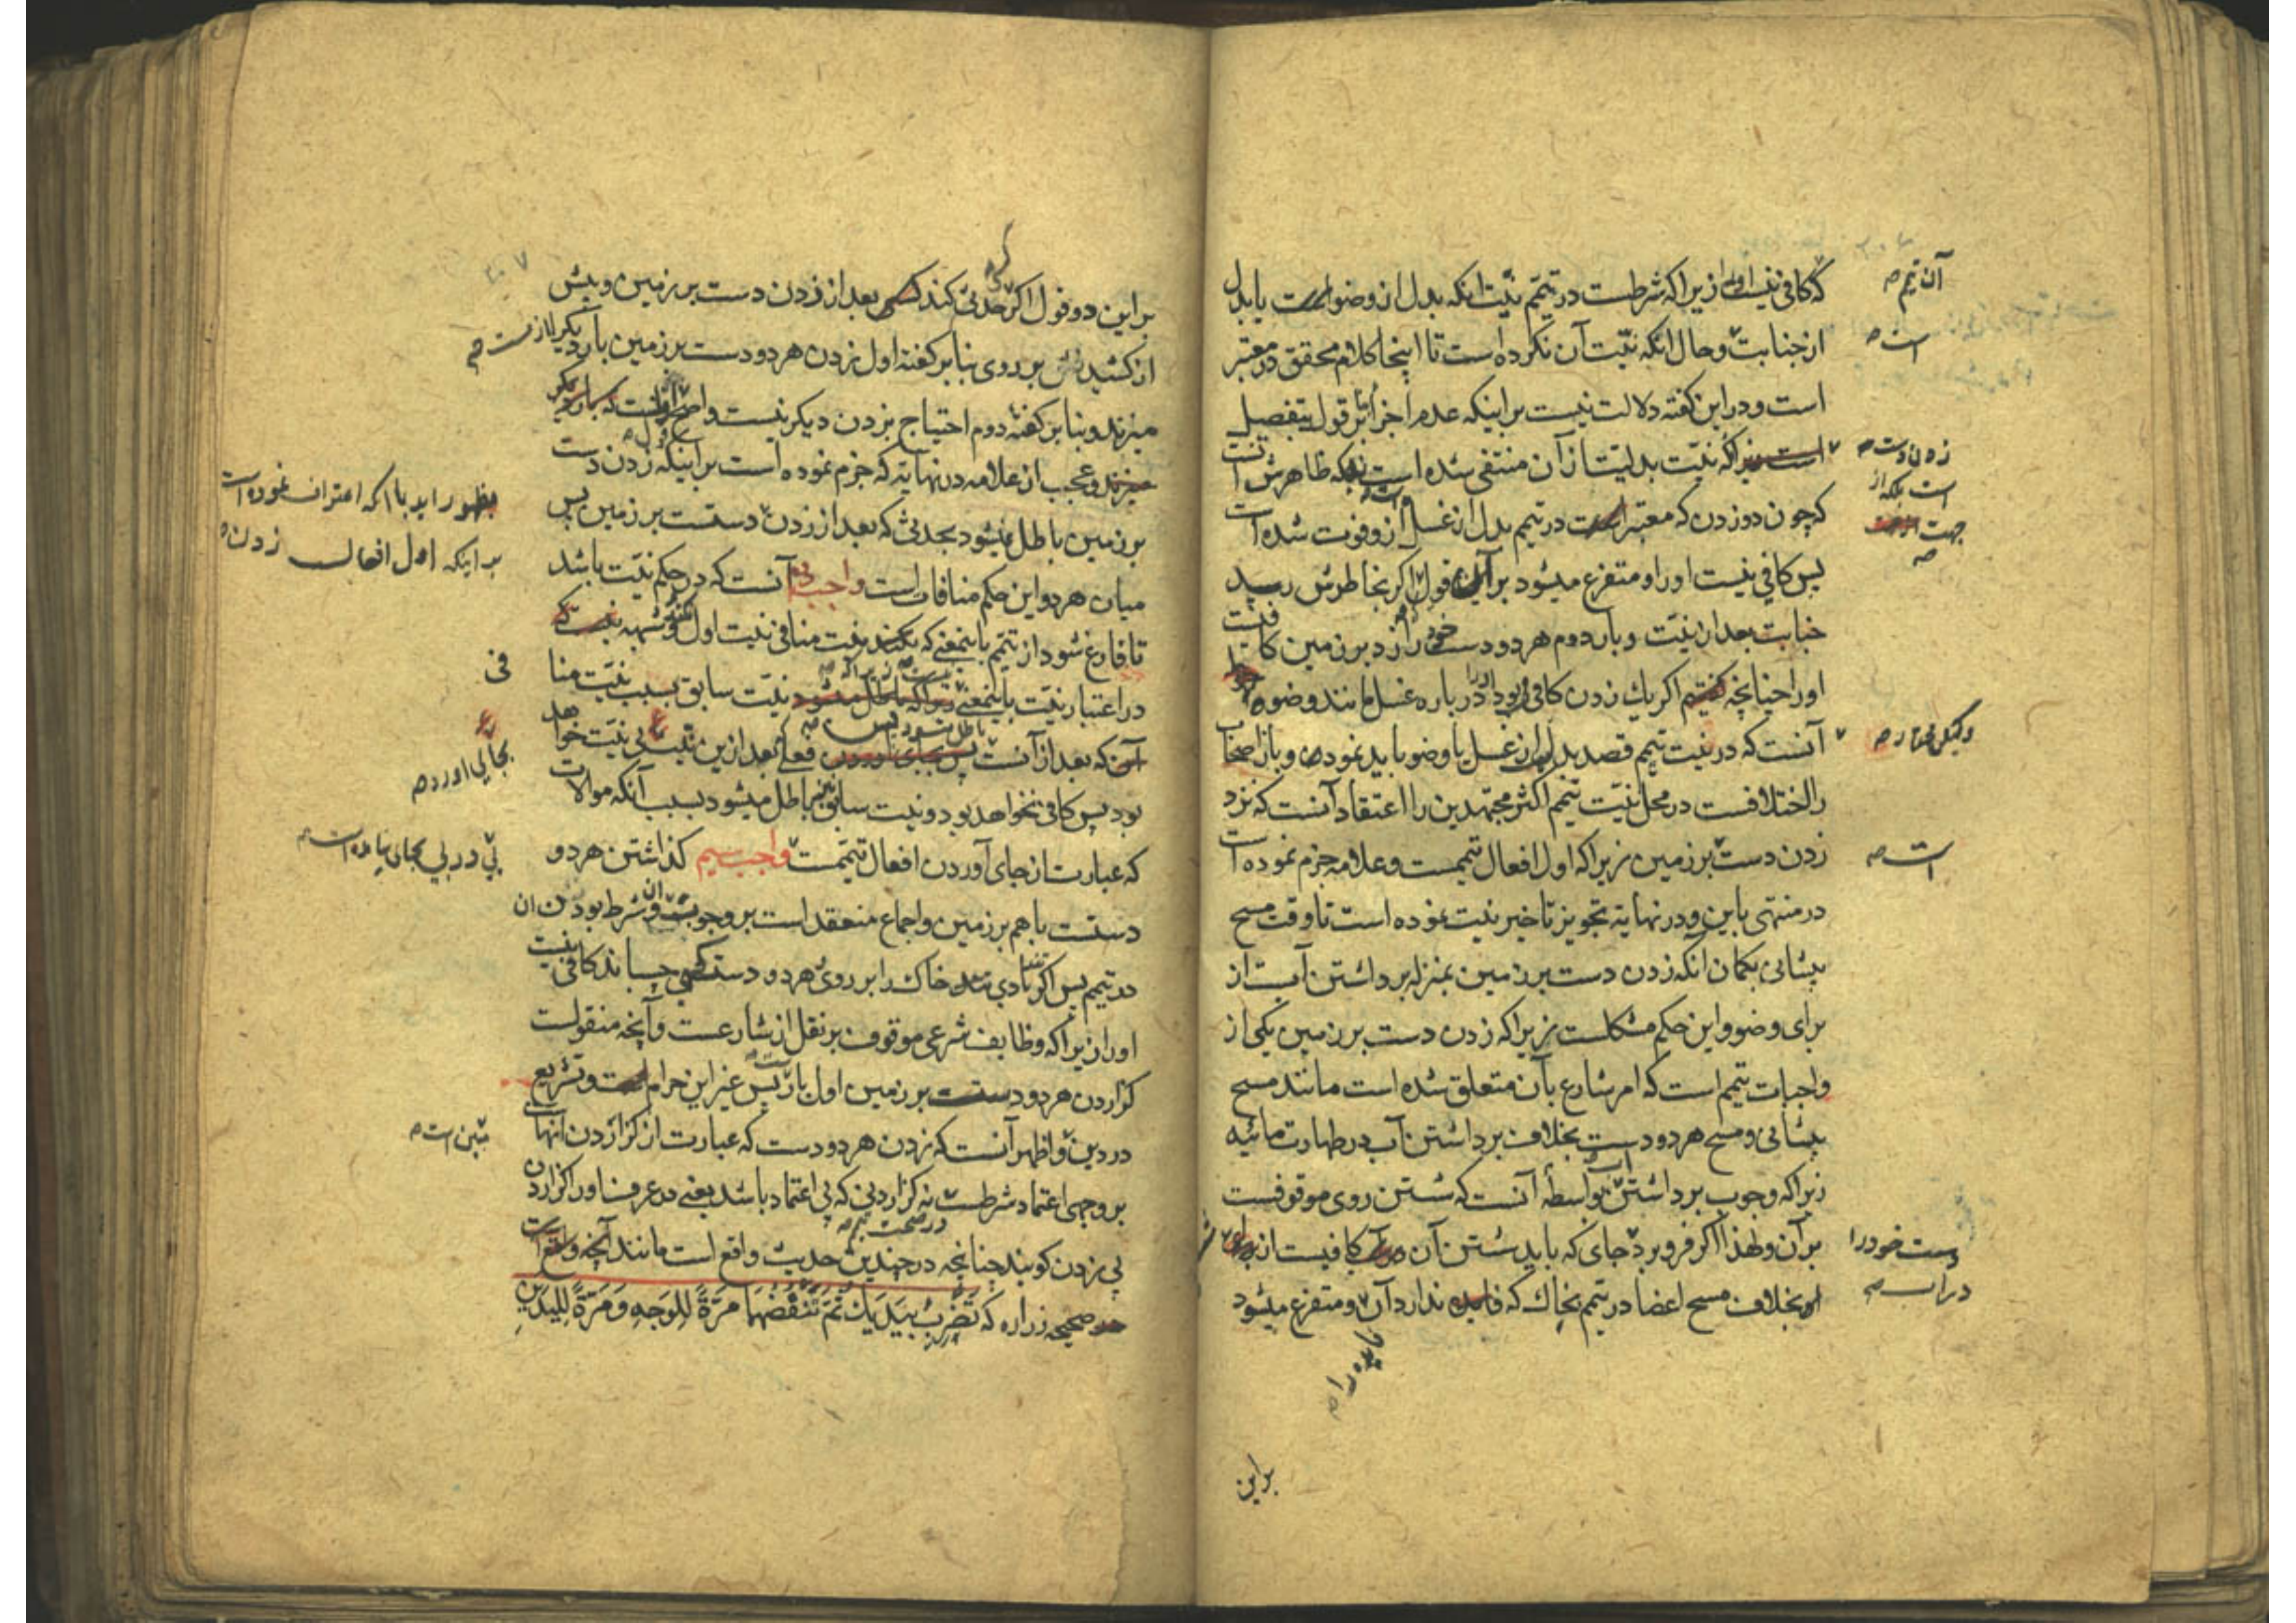 که کافی نیست او را زیرا که شرطست در تیمم نیت آنکه بدل از وضو است یا بدل
آن تیمم صح
از جنابت و حال آنکه نیت آن نکرده است تا اینجا کلام محقق در معتبر
است صح
است و در این گفته دلالت نیست بر اینکه عدم اجزا بر قول بتفصیل
است زیرا که نیت بدلیت از آن منتفی شده است بلکه ظاهرش آنست
زدن دست صح
است بلکه از
جهت
که چون دو زدن که معتبر است در تیمم بدل از غسل از و فوت شده است
پس کافی نیست او را و متفرع میشود بر این قول اگر بخاطرش رسید
جنابت بعد از نیت و بار دوم هر دو دست خود را زد بر زمین کافیست
او را چنانچه گفتیم اگر یک زدن کافی بود او را در باره غسل مانند وضو
آنست که در نیت تیمم قصد بدل از غسل یا وضو باید نمود و باز اصحاب
ولیکن مختار صح
را اختلافست در محل نیت تیمم اکثر مجتهدین را اعتقاد آنست که نزد
زدن دست بر زمین زیرا که اول افعال تیممست و علامه جزم نموده است
است صح
در منتهی باین و در نهایة تجویز تاخیر نیت نموده است تا وقت مسح
پیشانی بگمان آنکه زدن دست بر زمین بمنزله برداشتن آبست از
برای وضو و این حکم مشکلست زیرا که زدن دست بر زمین یکی از
واجبات تیمم است که امر شارع بآن متعلق شده است مانند مسح
پیشانی و مسح هر دو دست بخلاف برداشتن آب در طهارت مائیه
زیرا که وجوب برداشتن بواسطه آنست که شستن روی موقوفست
بر آن و لهذا اگر فرو برد جای که باید شستن آن در آب کافیست از برای
دست خود را
در آب صح
او بخلاف مسح اعضا در تیمم بخاک که فایده ندارد آن و متفرع میشود
فایده را صح
براین
بر این دو قول اگر حدثی کند کسی بعد از زدن دست بر زمین و پیش
از کشیدنش بر روی بنا بر گفته اول زدن هر دو دست بر زمین بار دیگر لازمست صح
میزند و بنا بر گفته دوم احتیاج بزدن دیگر نیست و اصح اولست که بار دیگر
میزند و عجب از علامه در نهایة که جزم نموده است بر اینکه زدن دست
بظهور اید با آنکه اعتراف نموده است
بر زمین باطل میشود بحدثی که بعد از زدن دستست بر زمین پس
بر اینکه اول افعال زدن
میان هر دو این حکم منافاتست واجب دویم آنست که در حکم نیت باشد
تا فارغ شود از تیمم باینمعنی که نکند نیت منافی نیت اول و شبهه نیست که
در اعتبار نیت باینمعنی زیرا که باطل میشود نیت سابق بسبب نیت منا
فی
آن که بعد از آنست پس بجای آوردن فعلی بعد ازین نیت بی نیت خواهد
باطل شود پس
بجای آورد صح
بود پس کافی نخواهد بود و نیت سابق نیز باطل میشود بسبب آنکه موالات
که عبارت از جای آوردن افعال تیممست واجب سیم گذاشتن هر دو
پی در پی بجای نیامده است صح
دستست با هم بر زمین و اجماع منعقد است بر وجوب آن و شرط بودن آن
در تیمم پس اگر بادی خاک را بر روی هر دو دست کسی چسباند کافی نیست
او را زیرا که وظایف شرعی موقوف بر نقل از شارعست و آنچه منقولست
گزاردن هر دو دستست بر زمین اول بار پس غیر این حرام است و تشریع
در دین و اظهر آنست که زدن هر دو دست که عبارت از گزاردن آنهاست
بر وجهی اعتماد شرطست نه گزاردنی که بی اعتماد باشد یعنی در عرف او را گزاردن
در صحت تیمم صح
بی زدن گویند چنانچه در چندین حدیث واقع است مانند آنچه واقع است
در صحیحه زراره که تَضْرِبُ بِیَدَیْكَ ثُمَّ تَنْفُضُهُمَا مَرَّةً لِلْوَجْهِ وَ مَرَّةً لِلْیَدَیْنِ